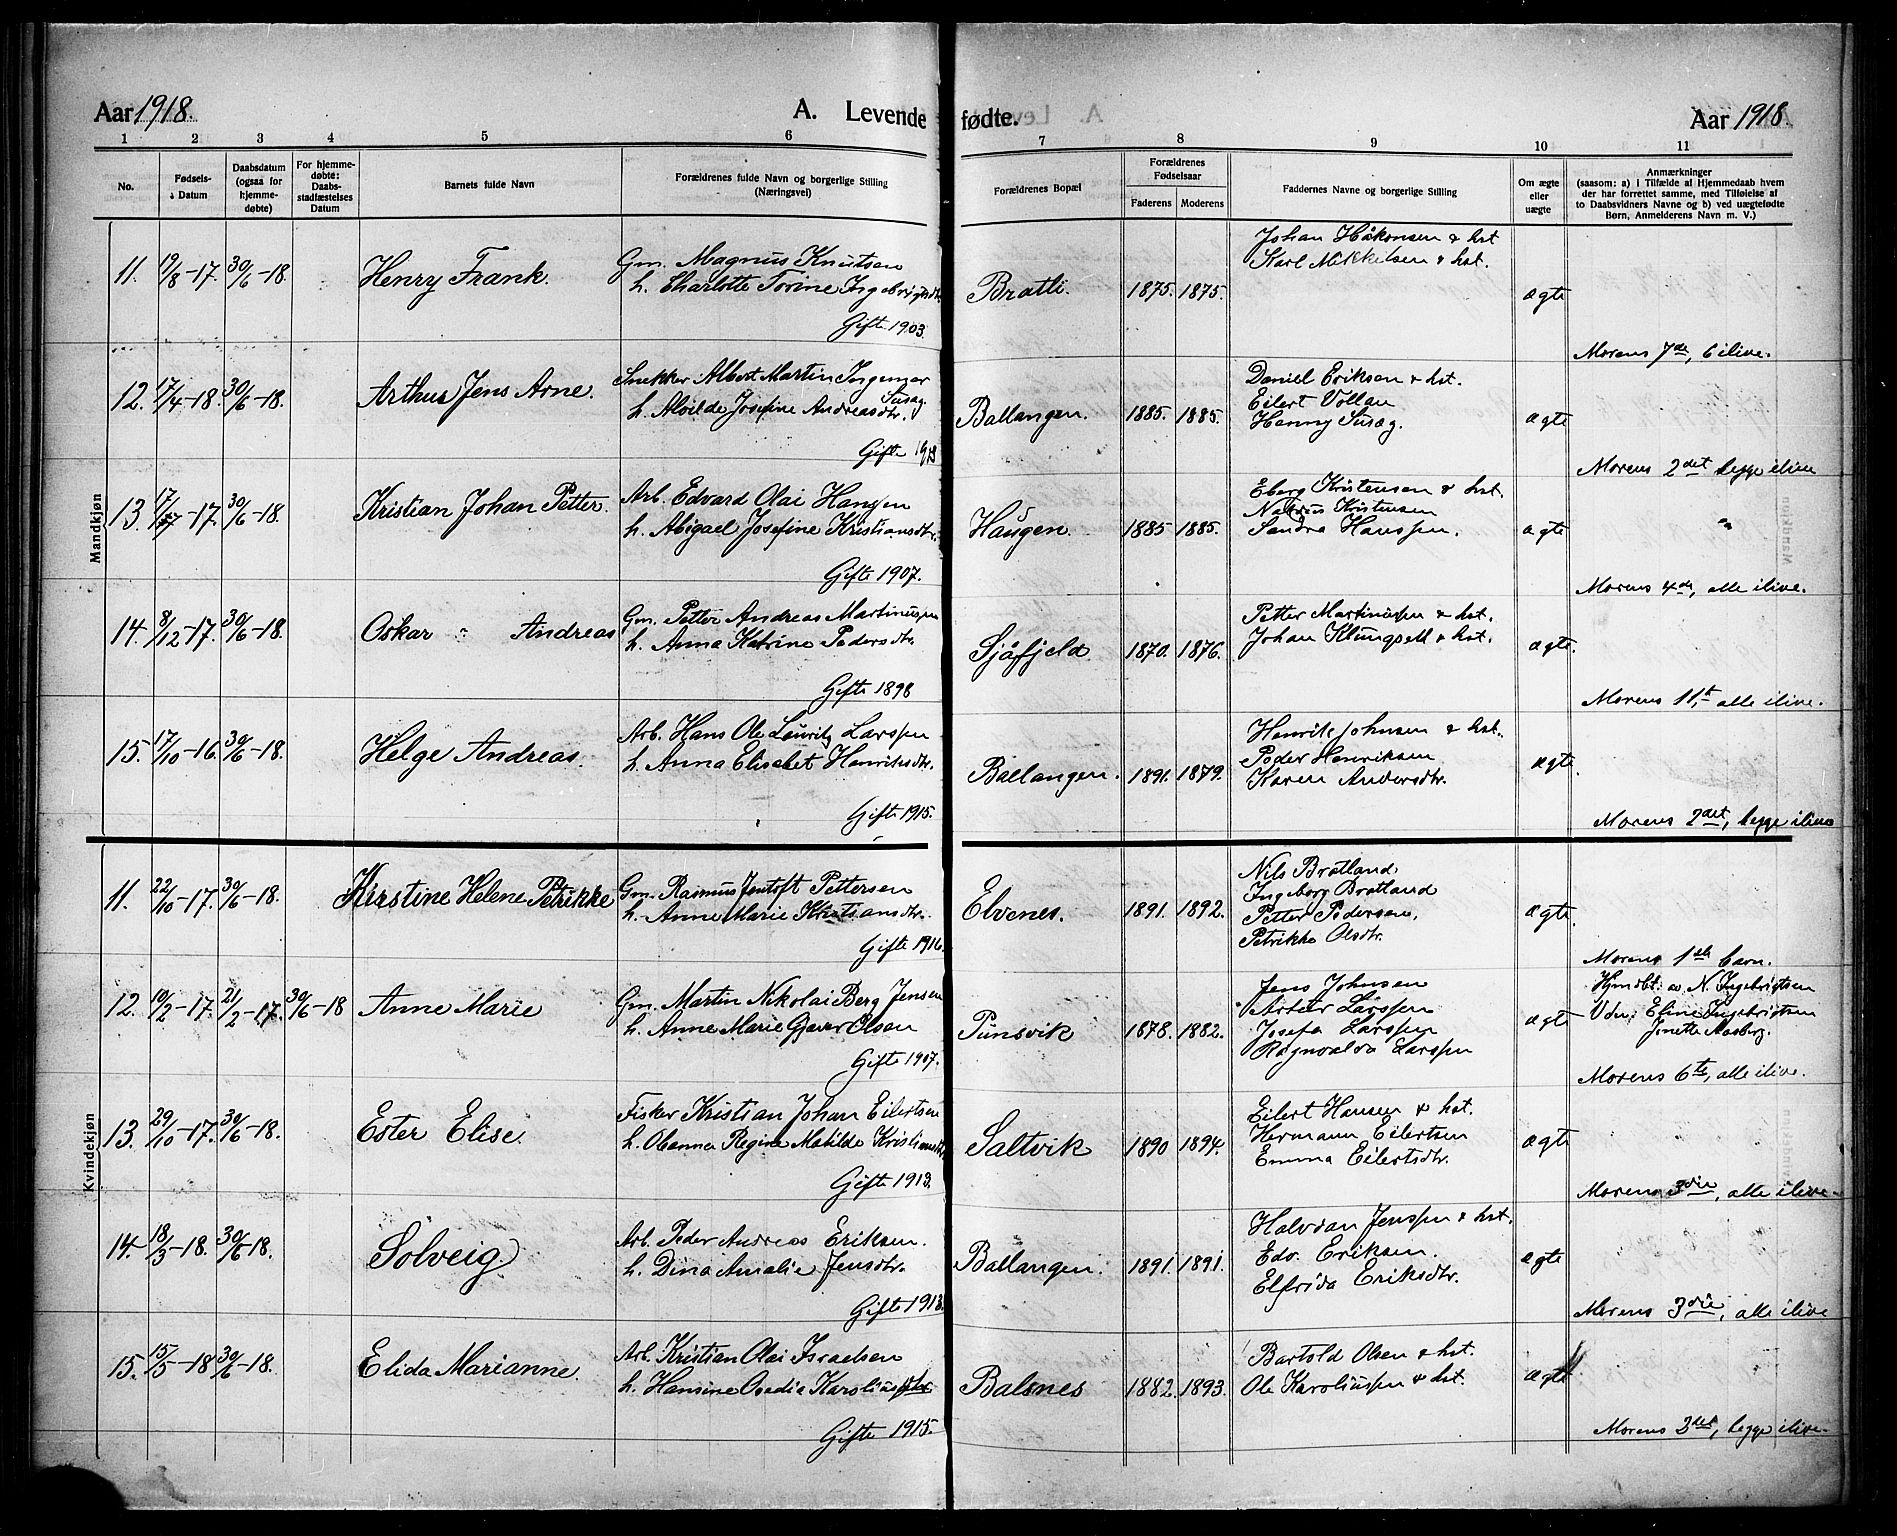 Aar 1918.
A. Levende
fødte.
Aar 1918.
1 2 3 4 5 6 7 8 9 10 11
No.
Fødsels-
Datum
Daabsdatum
(ogsaa for
hjemme-
døbte)
For hjemme-
døbte:
Daabs-
stadfæstelses
Datum
Barnets fulde Navn
Forældrenes fulde Navn og borgerlige Stilling
(Næringsvei)
Forældrenes Bopæl
Forældrenes
Fødselsaar
Faderens Moderens
Faddernes Navne og borgerlige Stilling
Om ægte
eller
uægte
Anmærkninger
(saasom: a) i Tilfælde af Hjemmedaab hvem
der har forrettet samme, med Tilføielse af
to Daabsvidners Navne og b) ved uægtefødte
Børn, Anmelderens Navn m. V.)
Mandkjøn
11. 19/8-17. 30/6-18. Henry Frank.
Gm. Magnus Knutsen
h. Charlotte Torine Ingebrigtsdtr.
Gifte 1903.
Bratli. 1875. 1875.
Johan Håkonsen & hst
Karl Mikkelsen & hst.
ægte
Morens 7de, 6 ilive.
12. 17/4-18. 30/6-18. Arthur Jens Arne.
Snekker Albert Martin Ingemar
Susag.
h. Alvilde Josefine Andreasdtr.
Gifte 1913
Ballangen. 1885. 1885.
Daniel Eriksen & hst.
Eilert Vollan
Henny Susæg.
ægte
Morens 2det begge ilive
13. 17/7-17. 30/6-18. Kristian Johan Petter.
Arb. Edvard Olai Hansen
h. Abigael Josefine Kristiansdtr.
Gifte 1907.
Haugen. 1885 1885.
Eberg Kristensen & hst.
Kristensen
Sandra Hanssen.
ægte
Morens 4de, alle ilive.
14. 8/12-17. 30/6-18. Oskar Andreas
Gm. Petter Andreas Martinussen
h. Anna Katrine Pedersdtr.
Gifte 1898
Sjåfjeld. 1870. 1876.
Petter Martinussen & hst.
Johan Klungseth & hst.
ægte.
Morens 11te, alle ilive.
15. 17/10-16. 30/6-18. Helge Andreas.
Arb. Hans Ole Louritz Larssen
h. Anna Elisabet Henriksdtr.
Gifte 1915.
Ballangen. 1891. 1879.
Henrik Johnsen & hst.
Peder Henriksen
Karen Andersdtr.
ægte.
Morens 2det, begge ilive
Kvindekjøn
11. 22/10-17. 30/6-18. Kirstine Helene Petrikke
Gm. Rasmus Jentoft Pettersen
h. Anne Marie Kristiansdtr.
Gifte 1916.
Elvenes. 1891. 1892.
Nils Bratland.
Ingeborg Bratland
Petter Pedersen,
Petrikke Olsdtr.
ægte.
Morens 1ste barn.
12. 10/2-17. 21/2-17. 30/6-18 Anne Marie
Gm. Martin Nikolai Berg Jensen
h. Anne Marie Gjæver Olsen
Gifte 1907.
Punsvik 1878. 1882.
Jens Johnsen
Artur Larssen
Josefa Larssen
Ragnvalda Larssen
ægte
Hjmdbt. av N. Ingebrigtsen
Vdn: Eline Ingebrigtsen
Jenette Aasberg.
Morens 6te, alle ilive.
13. 29/10-17. 30/6-18. Ester Elise.
Fisker Kristian Johan Eilertsen
h. Obanna Regine Matilde Kristiansdtr.
Gifte 1913.
Saltvik 1890 1894.
Eilert Hansen & hst.
Hermann Eilertsen
Emma Eilertsdtr.
ægte
Morens 3die, alle ilive.
14. 18/3-18. 30/6-18. Solveig
Arb. Peder Andreas Eriksen.
h. Dina Amalie Jensdtr.
Gifte 1913.
Ballangen. 1891. 1891.
Halvdan Jenssen & hst.
Edv. Eriksen.
Elfrida Eriksdtr.
ægte
Morens 3die, alle ilive
15. 15/5-18 30/6-18. Elida Marianne.
Arb. Kristian Olai Israelsen
h. Hansine Osedie Karoliusdtr
Gifte 1915.
Balsnes 1882. 1893.
Bartold Olsen & hst.
Ole Karoliussen & hst.
ægte
Morens 2det, begge ilive.